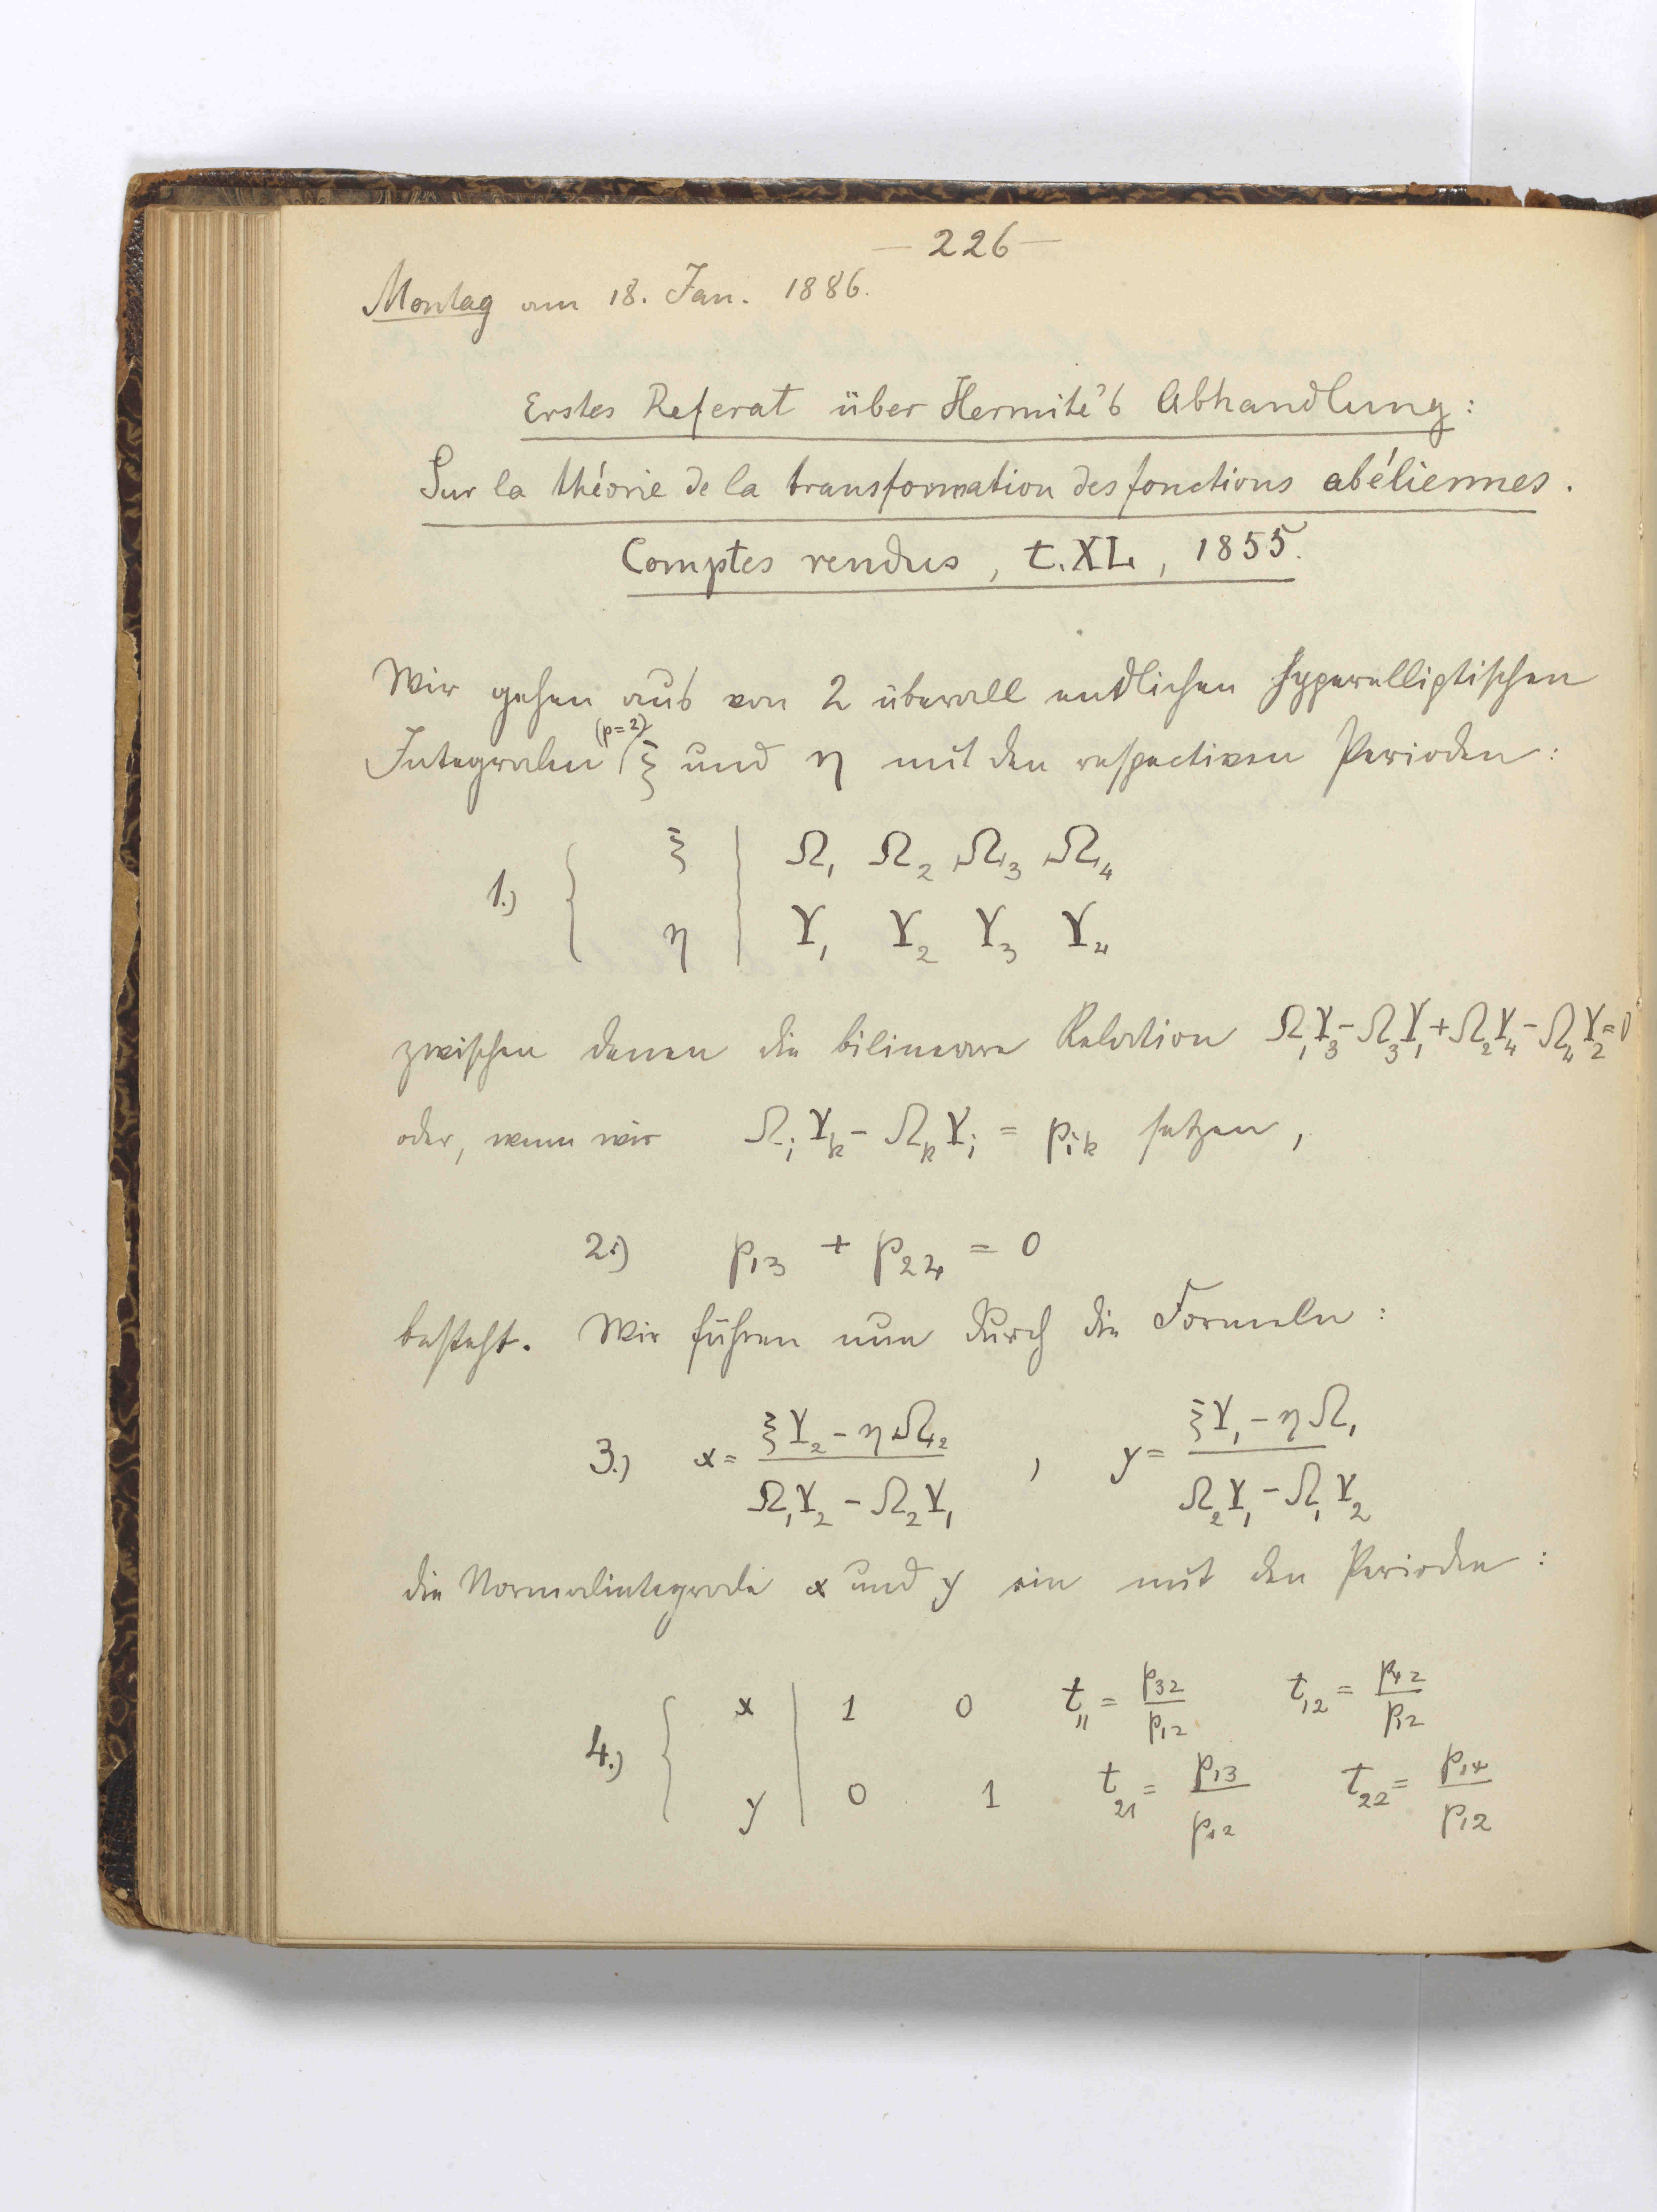 — 226 —
Montag am 18. Jan. 1886.
Erstes Referat über Hermite's Abhandlung:
Sur la théorie de la transformation des fonctions abéliennes.
Comptes rendus, t. XL, 1855.
Wir gehen aus von 2 überall endlichen hyperelliptischen
Integralen (p=2) ξ und η mit den respectiven Perioden:
1.) { ξ | Ω₁ Ω₂ Ω₃ Ω₄
η | Υ₁ Υ₂ Υ₃ Υ₄
zwischen denen die bilineare Relation Ω₁Υ₃ - Ω₃Υ₁ + Ω₂Υ₄ - Ω₄Υ₂ = 0
oder, wenn wir Ωᵢ Υₖ - Ωₖ Υᵢ = pᵢₖ setzen,
2.) p₁₃ + p₂₄ = 0
besteht. Wir führen nun durch die Formeln:
3.) x = (ξΥ₂ - ηΩ₂) / (Ω₁Υ₂ - Ω₂Υ₁) , y = (ξΥ₁ - ηΩ₁) / (Ω₂Υ₁ - Ω₁Υ₂)
die Normalintegrale x und y ein mit den Perioden:
4.) { x | 1 0 t₁₁ = p₃₂ / p₁₂ t₁₂ = p₄₂ / p₁₂
y | 0 1 t₂₁ = p₁₃ / p₁₂ t₂₂ = p₁₄ / p₁₂